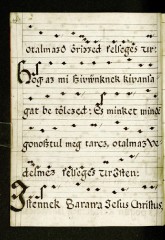 otalmazó őrizzed felséges úr:
Hog az mi hivünknek kivansa
gat be tölczed: Es minket minde
gonosztul meg tarcz, otalmaz ve
delmez felséges ur Isten:
Istennek Baranya Jesus Christus,